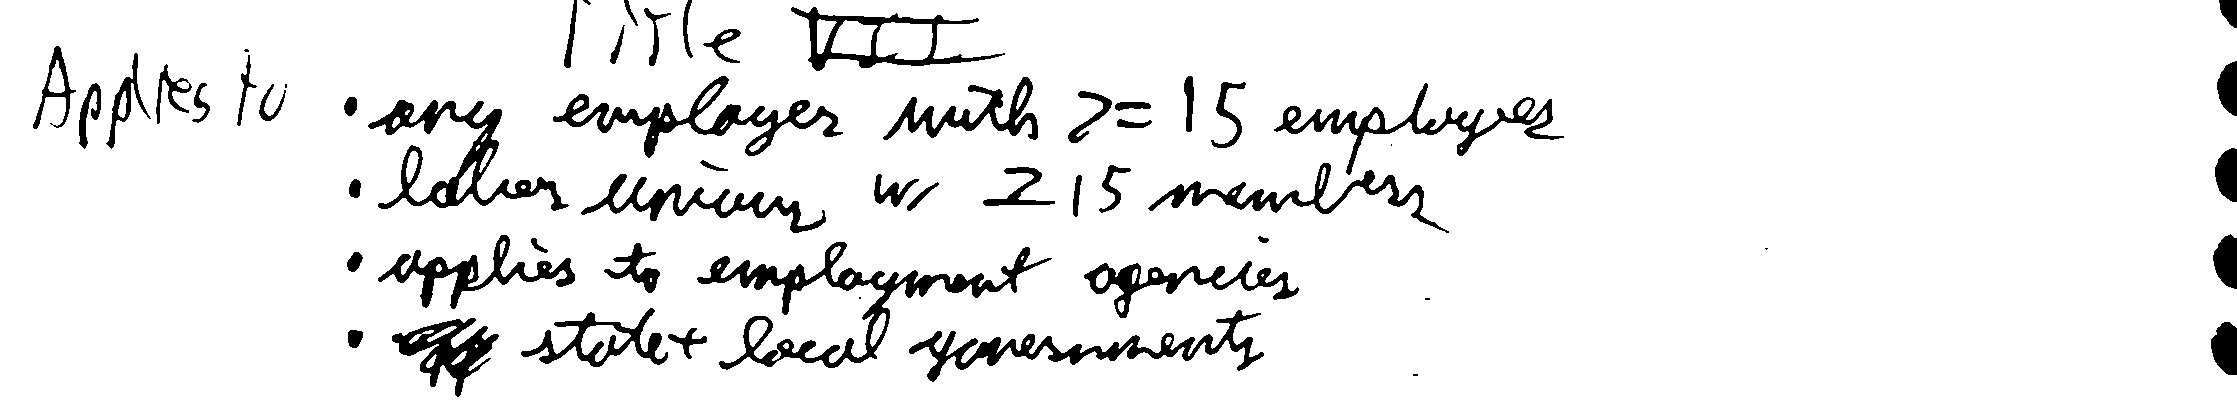 Title VII
Applies to • any employer with >= 15 employees
• labor unions w/ ≥ 15 members
• applies to employment agencies
• state + local governments